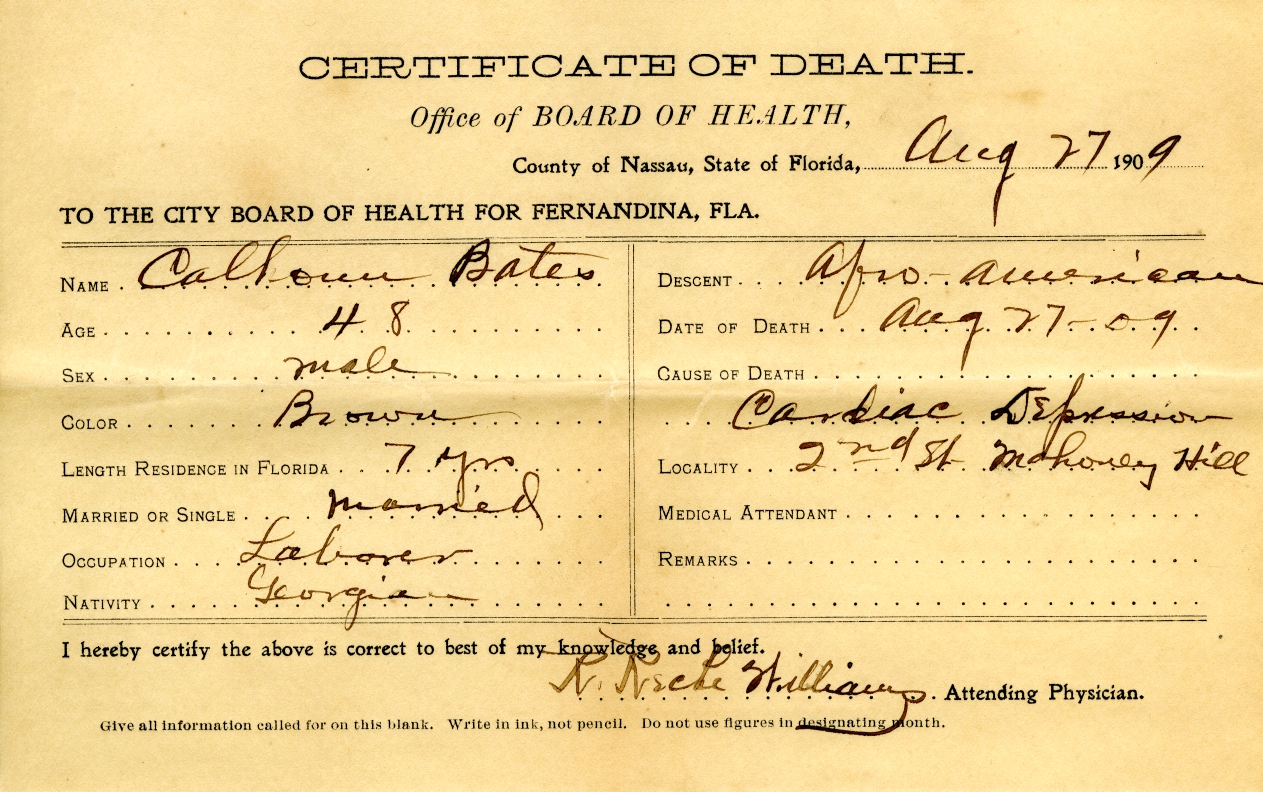 CERTIFICATE OF DEATH.
Office of BOARD OF HEALTH,
County of Nassau, State of Florida, Aug 27 1909
TO THE CITY BOARD OF HEALTH FOR FERNANDINA, FLA.
NAME Calhoun Bates
AGE 48
SEX male
COLOR Brown
LENGTH RESIDENCE IN FLORIDA 7 yrs
MARRIED OR SINGLE married
OCCUPATION Laborer
NATIVITY Georgian
DESCENT Afro-american
DATE OF DEATH Aug 27-09
CAUSE OF DEATH
Cardiac Depression
LOCALITY 2nd St Mahoney Hill
MEDICAL ATTENDANT
REMARKS
I hereby certify the above is correct to best of my knowledge and belief.
R. Williams Attending Physician.
Give all information called for on this blank. Write in ink, not pencil. Do not use figures in designating month.